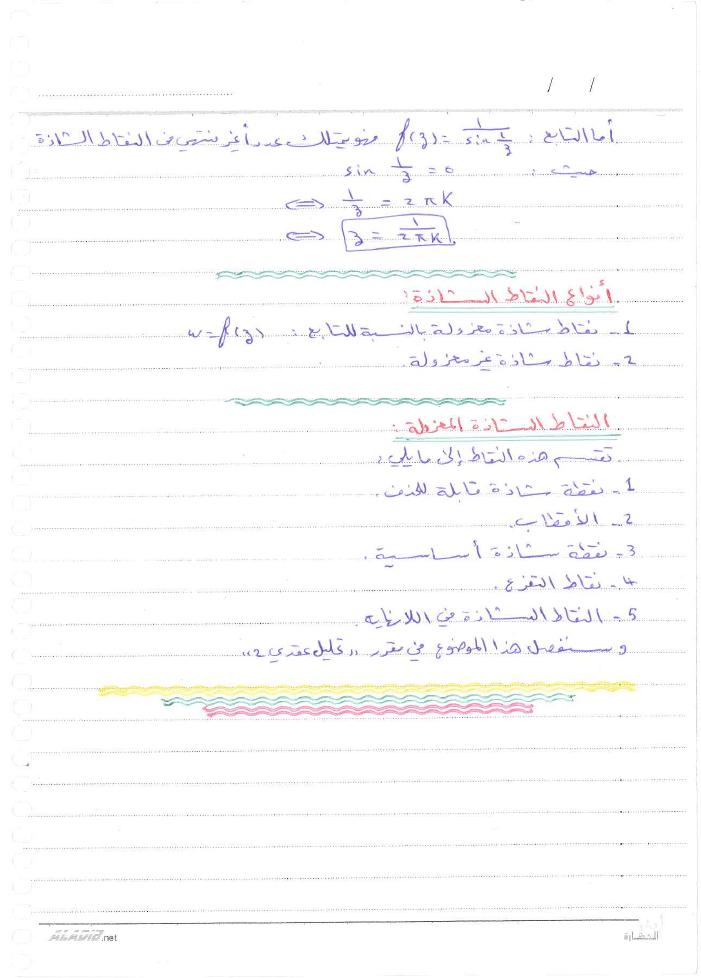 / /
أما التابع : f(z) = 1/sin 1/z فهو يمتلك عدداً غير منتهي من النقاط الشاذة
حيث : sin 1/z = 0
⇔ 1/z = 2πK
⇔ z = 1/2πK
أنواع النقاط الشاذة:
1- نقاط شاذة معزولة بالنسبة للتابع : w=f(z)
2- نقاط شاذة غير معزولة.
النقاط الشاذة المعزولة :
تقسم هذه النقاط إلى ما يلي :
1- نقطة شاذة قابلة للحذف.
2- الأقطاب.
3- نقطة شاذة أساسية.
4- نقاط التفرع.
5- النقاط الشاذة في اللانهاية.
وسنفصل هذا الموضوع في مقرر "تحليل عقدي 2"
ALADIB.net